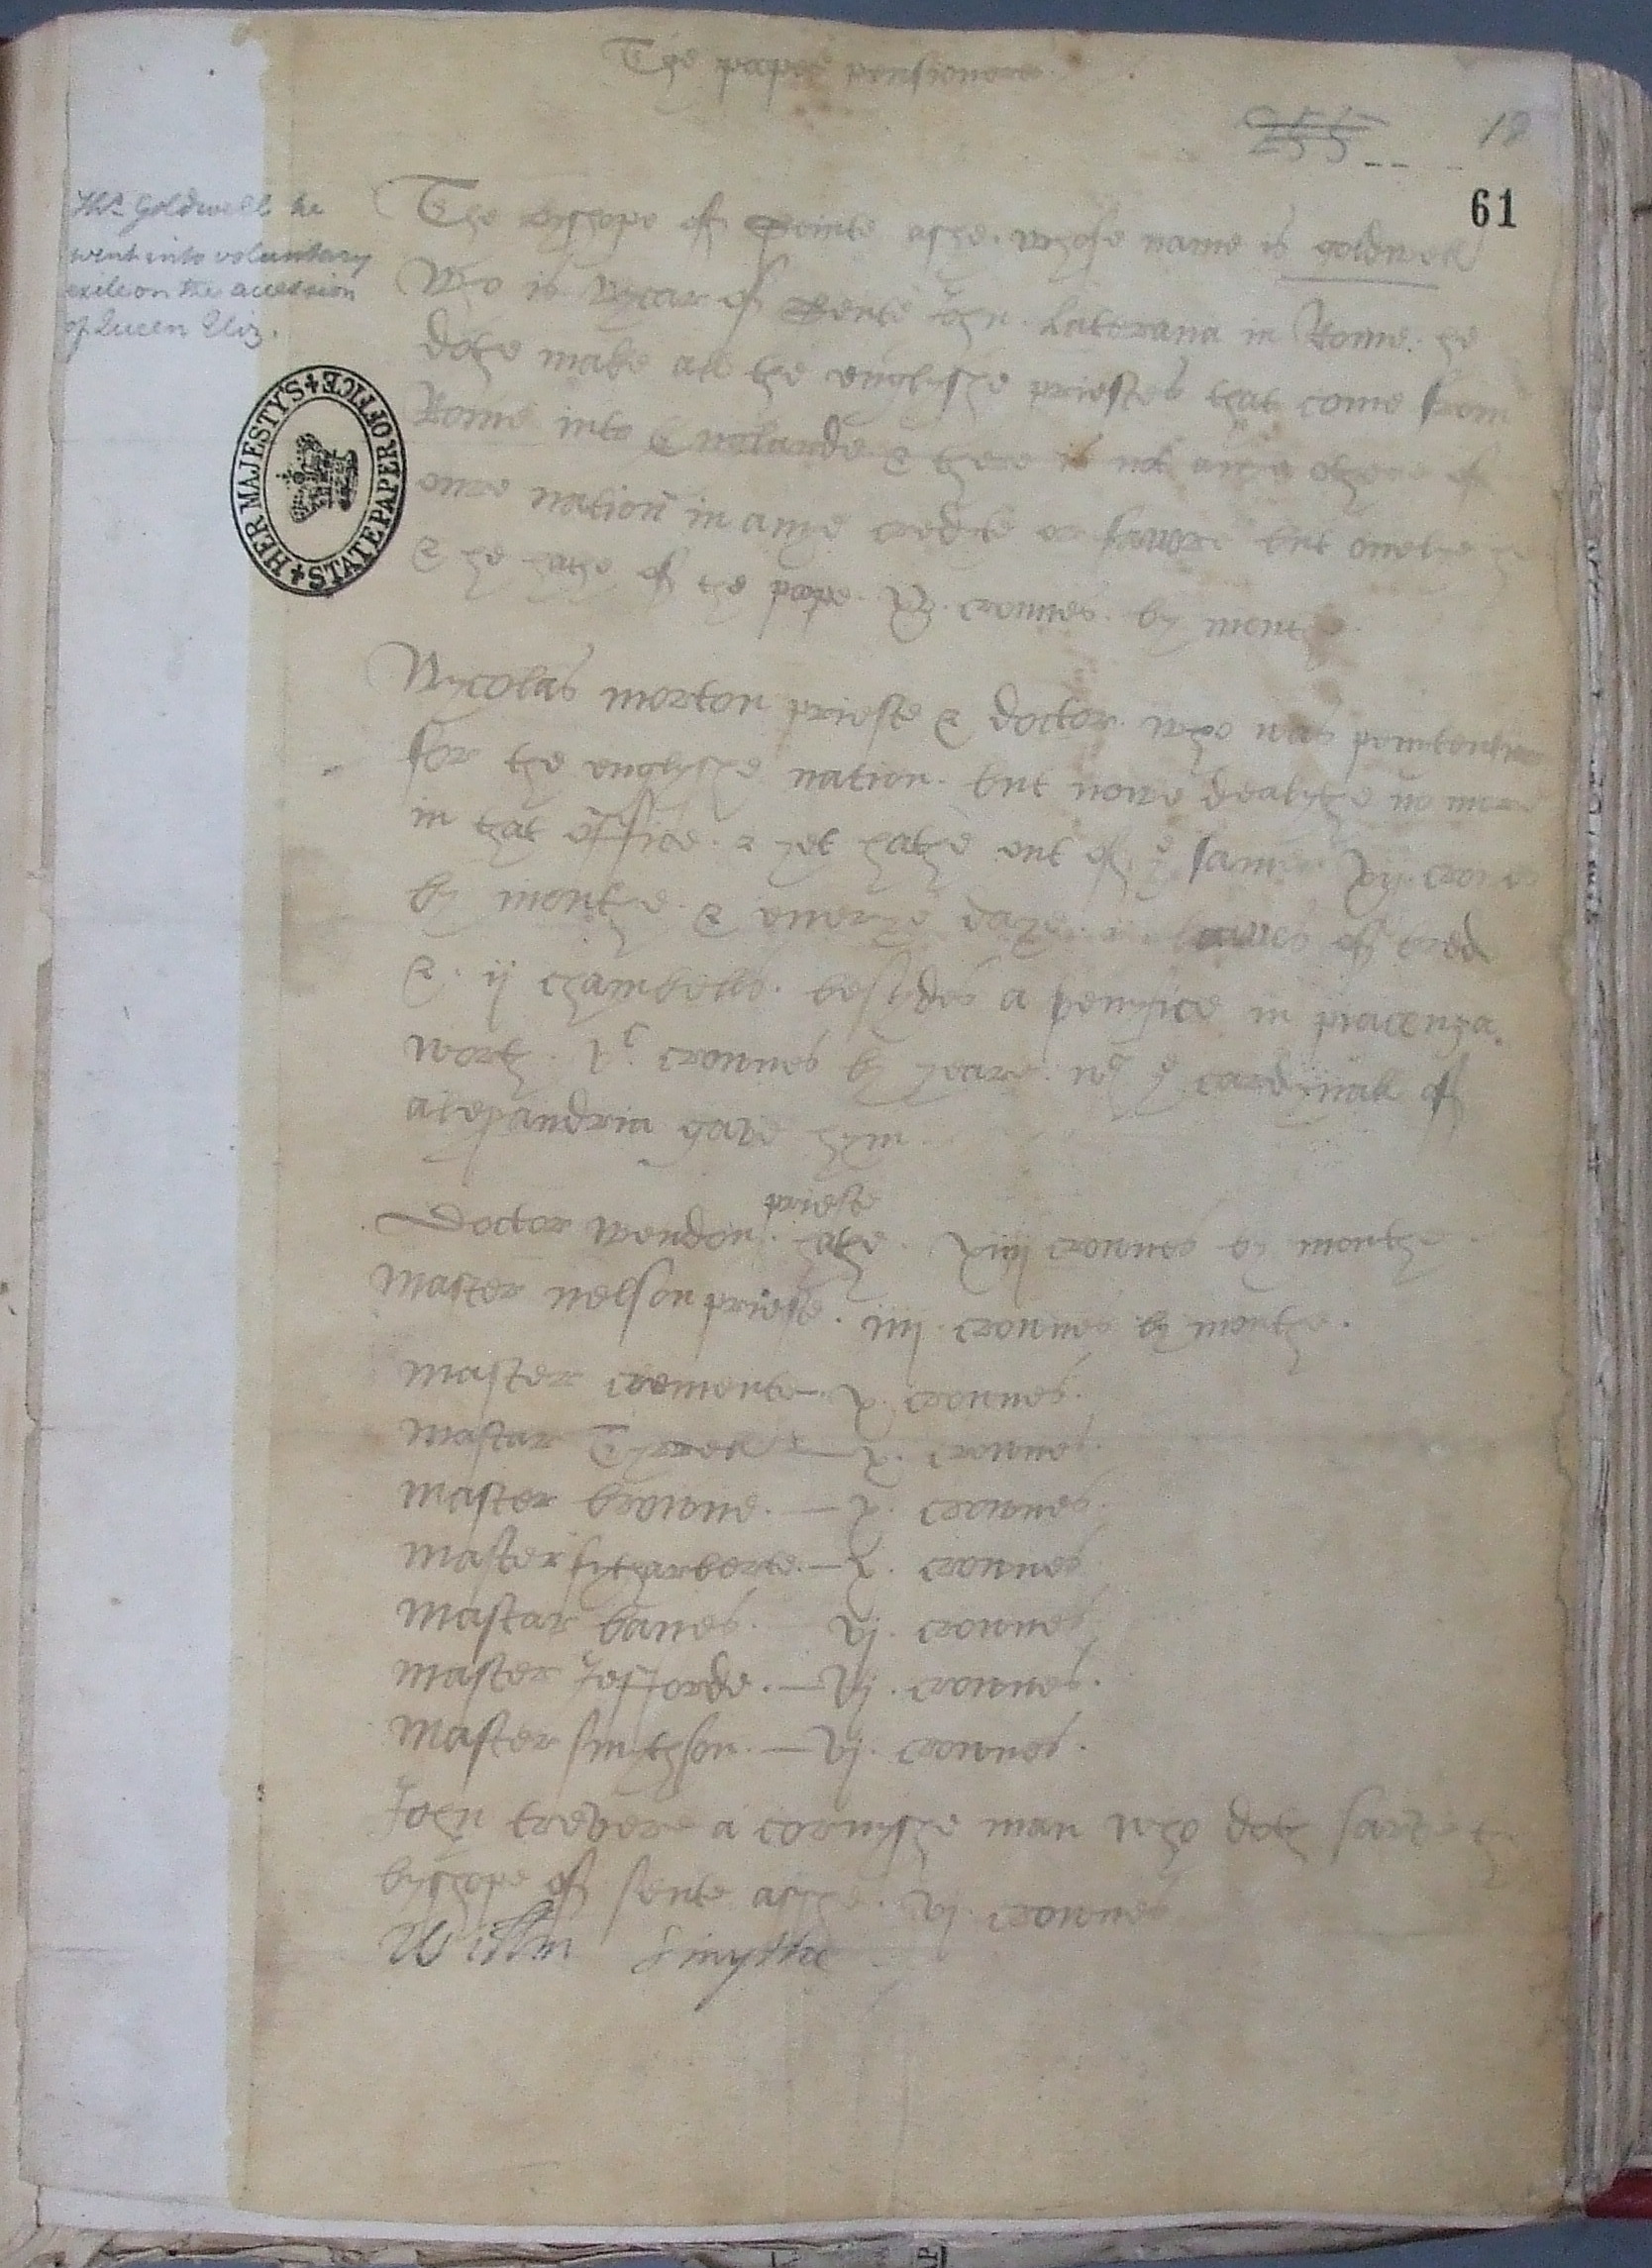 The popes pensioners
255
18
61
Ths. Goldwell he
went into voluntary
exile on the accession
of Queen Eliz.
HER MAJESTY'S STATE PAPER OFFICE
The bysshope of Seinte asse. whose name is goldwell
Who is vycar of Sente John Laterana in Rome. he
dothe make all the englysshe priestes that come from
Rome into Englande & there is not anye othere of
oure nation in anye credyte or favore but onelye he
& he hathe of the pope. crounes. by monthe.
Nycolas morton prieste & doctor who was penitentier
for the englysshe nation. but nowe dealythe no more
in that office. & yet hathe out of ye same xij. crounes
by monthe. & euerye daye. ij loaves of bred
&. ij chambells. besydes a benyfice in piacenza.
worth. vc. crounes by yeare. wc ye cardynall of
alexandria gave hym.
prieste
Doctor wendon. hathe. xiiij crounes by monthe.
Master nelson prieste. iiij. crounes by monthe.
Master clemente. x. crounes.
Mastar Tyrrell — x. crounes.
Master browne. — x. crounes.
Master fytharberte. — x. crounes
Mastar banes. vj. crounes
Master Jefforde. — vj. crounes.
Master smythson. — vj. crounes.
John trevere a cornysshe man who doth sarve the
bysshope of sente asshe. vj. crounes
Willm Smythe